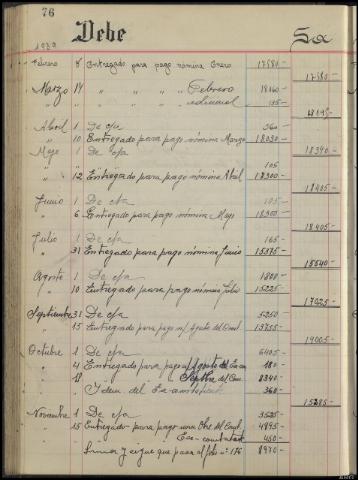 76
Debe
1939
Febrero 8 Entregado para pago nómina Enero 17580-
17580-
Marzo 14 " " " " Febrero 18160-
" " " " " " 135-
Abril 1 De c/a 360-
" 10 Entregado para pago nómina Marzo 18030-
18390-
Mayo 1 De c/a
105-
" 12 Entregado para pago nómina Abril 18300-
18405-
Junio 1 De c/a 105-
" 6 Entregado para pago nómina Mayo 18300-
18405-
Julio 1 De c/a 165-
" 31 Entregado para pago nómina Junio 15375-
15540-
Agosto 1 De c/a 1800-
" 10 Entregado para pago nómina Julio 15225-
17025-
Septiembre 31 De c/a 5250-
" 15 Entregado para pago n/ Agosto del 13755-
19005-
Octubre 1 De c/a 6405-
" 4 Entregado para pago n/ Agosto de 180-
" 18 " " " Septbre del 8340-
Idem del 360-
15285-
Noviembre 1 De c/a 3525-
" 15 Entregado para pago nom Obre del 4995-
450-
Suma y sigue que pasa al folio nº 176 8970-